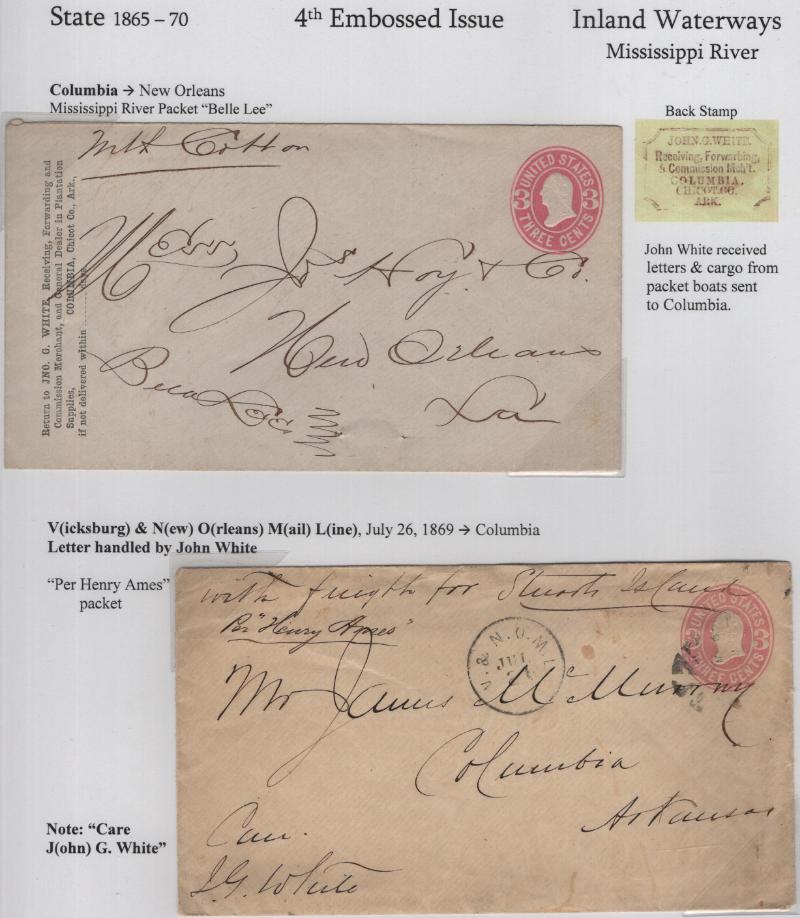 State 1865 – 70
4th Embossed Issue
Inland Waterways
Mississippi River
Columbia → New Orleans
Mississippi River Packet “Belle Lee”
Back Stamp
With Cotton
UNITED STATES
3 3
THREE CENTS
Return to JNO. G. WHITE, Receiving, Forwarding and
Commission Merchant, and General Dealer in Plantation
Supplies, COLUMBIA, Chicot Co., Ark.,
if not delivered within
Mess Jos Hoy & Co.
New Orleans
La
Bell Lee
JOHN.G.WHITE.
Receiving, Forwarding,
& Commission Mch't.
COLUMBIA.
CHICOT.CO.
ARK.
John White received
letters & cargo from
packet boats sent
to Columbia.
V(icksburg) & N(ew) O(rleans) M(ail) L(ine), July 26, 1869 → Columbia
Letter handled by John White
“Per Henry Ames”
packet
with freigth for Stuarts Island
Per "Henry Ames"
V. & N.O.M.L
JUL
26
UNITED STATES
3 3
THREE CENTS
Mr James McMurray
Columbia
Arkansas
Care
J.G. White
Note: “Care
J(ohn) G. White”